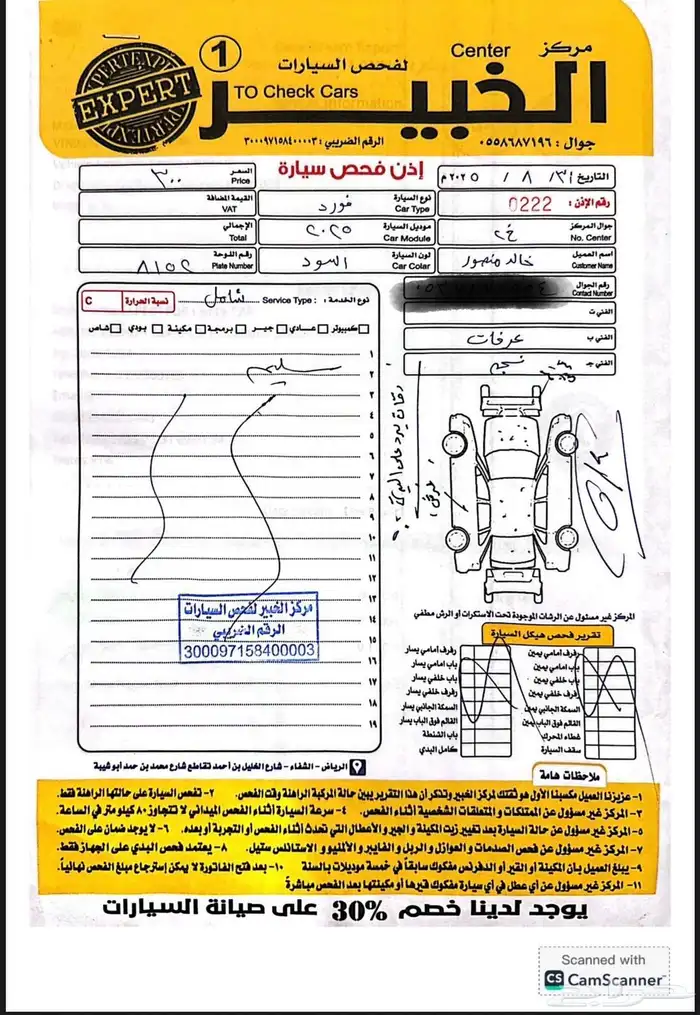 مركز Center
الخبير
1
لفحص السيارات
TO Check Cars
EXPERT
جوال : ٠٥٥٨٦٨٧١٩٦
الرقم الضريبي: ٣٠٠٠٩٧١٥٨٤٠٠٠٠٣
إذن فحص سيارة
التاريخ ٣١ / ٨ / ٢٠٢٥ م
السعر Price ٣٠٠
رقم الإذن : 0222
نوع السيارة Car Type فورد
القيمة المضافة VAT
جوال المركز No. Center
موديل السيارة Car Module ٢٠٢٥
الإجمالي Total
اسم العميل Customer Name خالد منصور
لون السيارة Car Colar اسود
رقم اللوحة Plate Number ٨١٥٢
رقم الجوال Contact Number
الفني ت
الفني ب عرفات
الفني ج نجم
نوع الخدمة : Service Type : شامل
نسبة الحرارة C
كمبيوتر عـادي جيـر برمجة مكينة بودي شاص
١
٢ سليم
٣
٤
٥
٦
٧
٨
٩
١٠
١١
١٢
١٣
١٤
١٥
١٦
١٧
١٨
١٩
مركز الخبير لفحص السيارات
الرقم الضريبي
300097158400003
المركز غير مسئول عن الرشات الموجودة تحت الاستكرات أو الرش مطفي
تقرير فحص هيكل السيارة
رفرف امامي يمين
باب امامي يمين
باب خلفي يمين
رفرف خلفي يمين
السمكة الجانبي يمين
القائم فوق الباب يمين
غطاء المحرك
سقف السيارة
رفرف امامي يسار
باب امامي يسار
باب خلفي يسار
رفرف خلفي يسار
السمكة الجانبي يسار
القائم فوق الباب يسار
باب الشنطة
كامل البدي
الرياض - الشفاء - شارع الخليل بن أحمد تقاطع شارع محمد بن حمد أبو شيبة
ملاحظات هامة
١- عزيزنا العميل مكسبنا الأول هو ثقتك لمركز الخبير وتذكر أن هذا التقرير يبين حالة المركبة الراهنة وقت الفحص. ٢- تفحص السيارة على حالتها الراهنة فقط.
٣- المركز غير مسؤول عن الممتلكات و المتعلقات الشخصية أثناء الفحص. ٤- سرعة السيارة أثناء الفحص الميداني لا تتجاوز ٨٠ كيلو متر في الساعة.
٥- المركز غير مسؤول عن حالة السيارة بعد تغيير زيت المكينة و الجير و الأعطال التي تحدث أثناء الفحص أو التجربة أو بعده. ٦- لا يوجد ضمان على الفحص.
٧- المركز غير مسؤول عن فحص الصدمات و العوازل و الربل و الفايبر و الألمنيو و الاستانلس ستيل. ٨- يعتمد فحص البدي على الجهاز فقط.
٩- يبلغ العميل بأن المكينة أو القير أو الدفرنس مفكوك سابقاً في خمسة موديلات بالسنة ١٠- بعد فتح الفاتورة لا يمكن إسترجاع مبلغ الفحص نهائياً.
١١- المركز غير مسؤول عن أي عطل في أي سيارة مفكوك قيرها أو مكينتها بعد الفحص مباشرةً
يوجد لدينا خصم 30% على صيانة السيارات
Scanned with
CS CamScanner
حراج